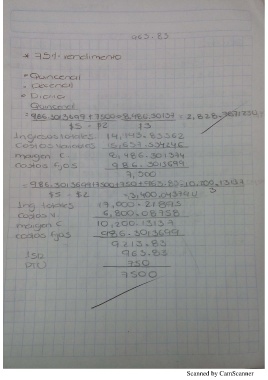 963.83
* 75% rendimiento
• Quincenal
• Decenal
• Diario
Quincenal
= 986.3013699 + 7500 = 8,486.30137 = 2,828.
$5 - $2 3
Ingresos totales 14,143.83562
Costos variables
margen C 8,486.301370
costos fijos 986.3013699
7,500
= 986.3013699 + 7500 + 750 + 963.83 = 10,200.13137
$5 - $2 3
= 3,400.043790
Ing. totales 17,000.21893
Costos V. 6,800.08758
margen C 10,200.13137
costos fijos 986.3013699
9213.83
ISR 963.83
PTU 750
7500
Scanned by CamScanner